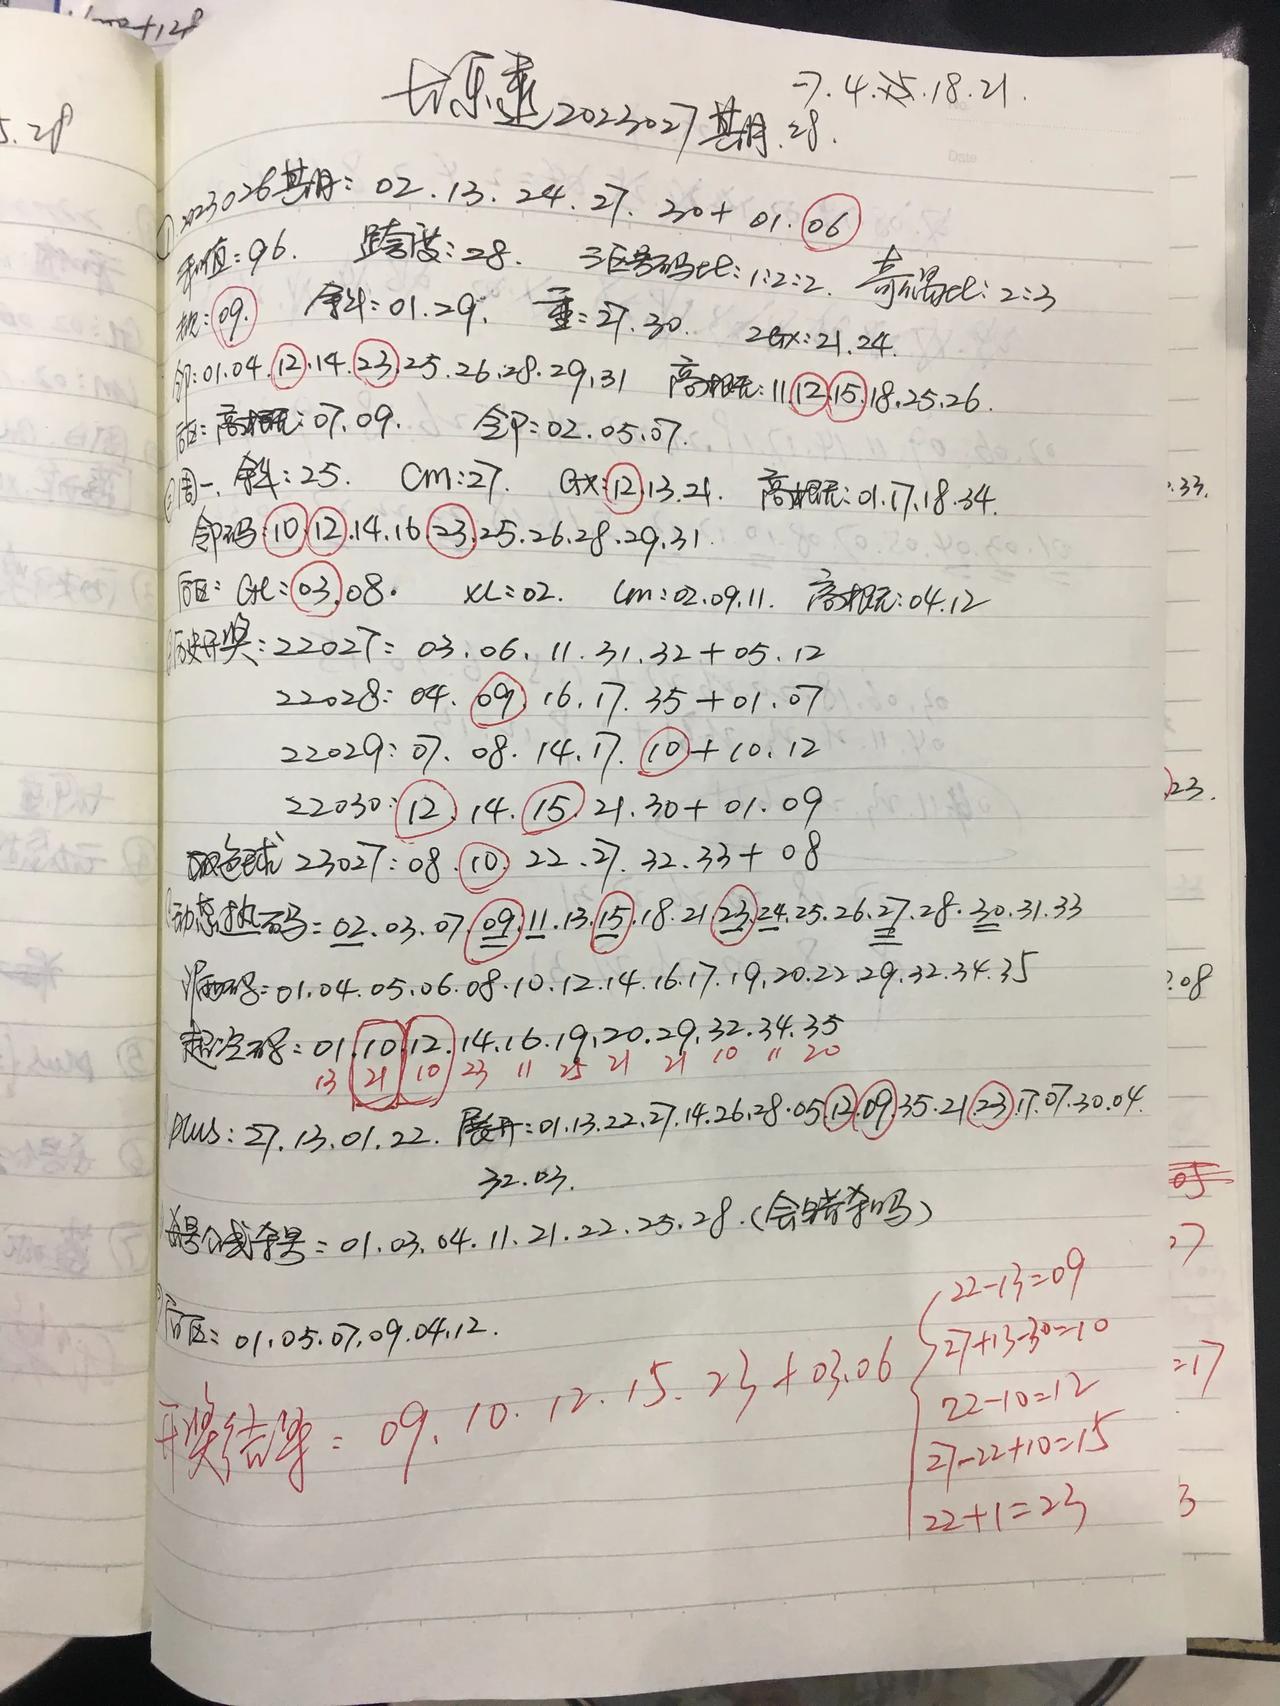 大乐透2023027期
-7.4.15.18.21.
28.
① 2023026期: 02.13.24.27.30+01.06
和值:96. 跨度:28. 三区号码比:1:2:2. 奇偶比:2:3
09. 斜:01.29. 重:27.30. 2Gx:21.24.
邻:01.04.12.14.23.25.26.28.29.31 高概:11.12.15.18.25.26.
后区:高概:07.09. 邻:02.05.07.
周一.斜:25. Cm:27. Gx:12.13.21. 高概:01.17.18.34.
邻码:10.12.14.16.23.25.26.28.29.31.
后区: GL:03.08. XL:02. Cm:02.09.11. 高概:04.12
历史开奖:22027: 03.06.11.31.32+05.12
22028: 04.09.16.17.35+01.07
22029: 07.08.14.17.10+10.12
22030: 12.14.15.21.30+01.09
双色球 23027: 08.10.22.27.32.33+08
动态热码:02.03.07.09.11.13.15.18.21.23.24.25.26.27.28.30.31.33
码:01.04.05.06.08.10.12.14.16.17.19.20.22.29.32.34.35
超冷码:01.10.12.14.16.19.20.29.32.34.35
13 21 10 23 11 25 21 21 10 11 20
plus: 27.13.01.22. 展开:01.13.22.27.14.26.28.05.12.09.35.21.23.17.07.30.04.
32.03.
杀号公式杀号:01.03.04.11.21.22.25.28.(会错杀吗)
后区:01.05.07.09.04.12.
开奖结果: 09.10.12.15.23+03.06
22-13=09
27+13-30=10
22-10=12
27-22+10=15
22+1=23
5.28
.33.
23.
.08
05
27
=17
3